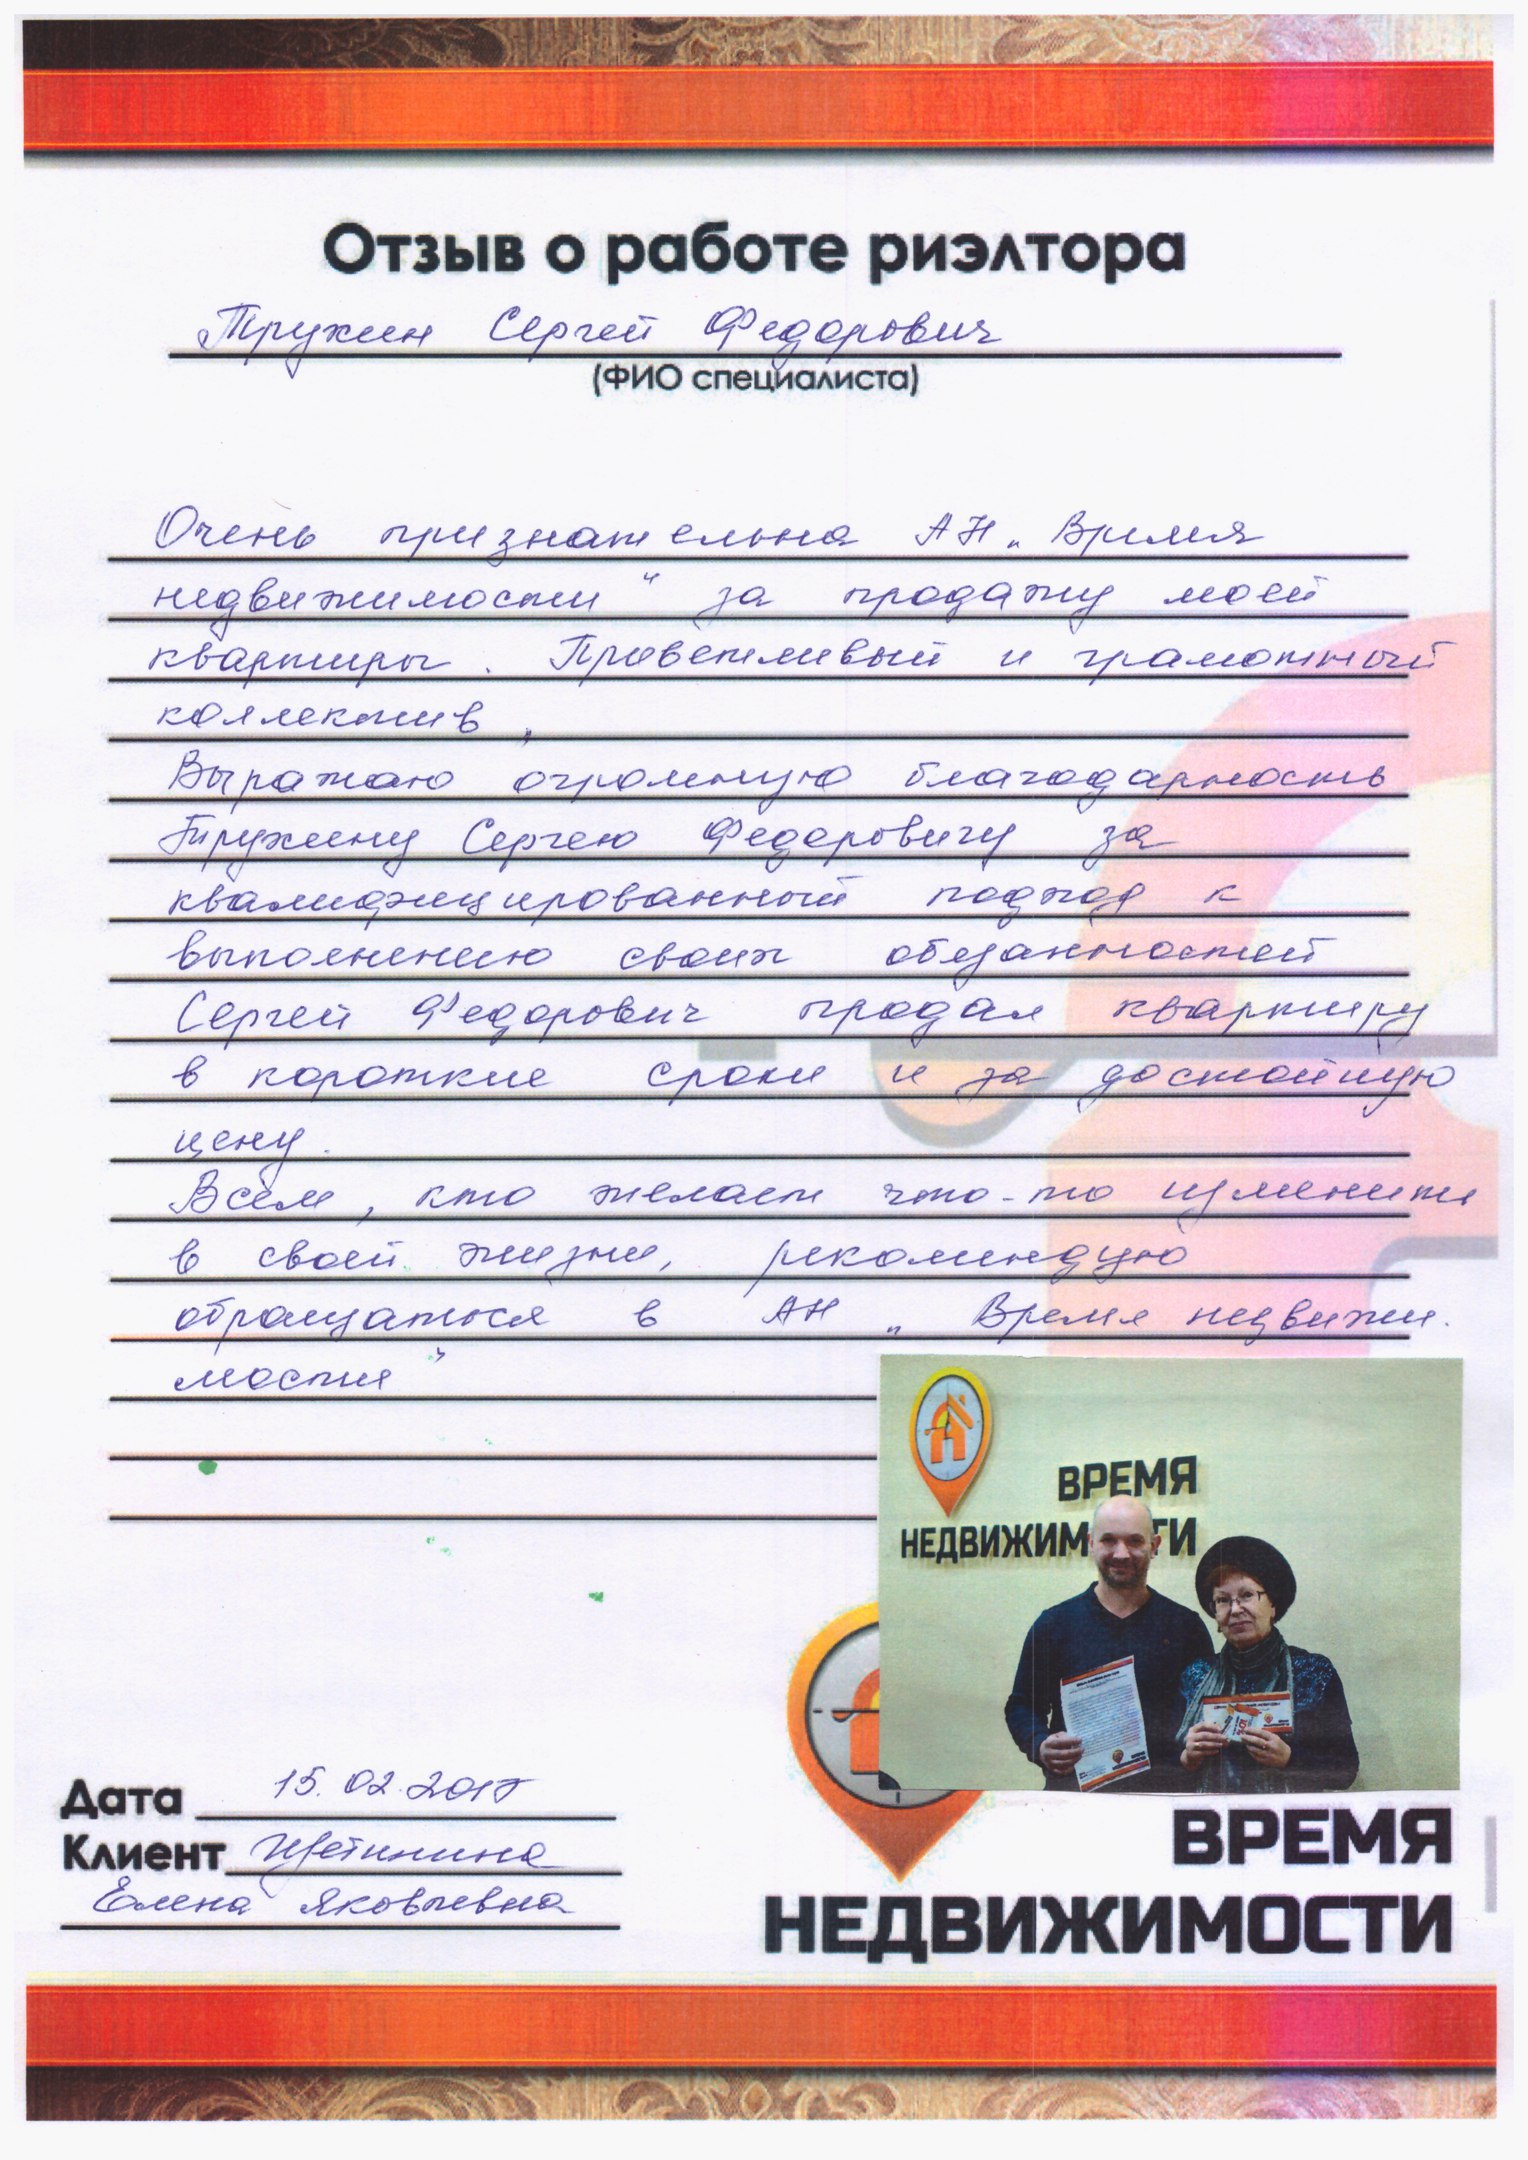 Отзыв о работе риэлтора
Тружин Сергей Федорович
(ФИО специалиста)
Очень признательна АН „Время
недвижимости“ за продажу моей
квартиры. Приветливый и грамотный
коллектив,
Выражаю огромную благодарность
Тружину Сергею Федоровичу за
квалифицированный подход к
выполнению своих обязанностей
Сергей Федорович продал квартиру
в короткие сроки и за достойную
цену.
Всем, кто желает что-то изменить
в своей жизни, рекомендую
обращаться в АН „Время недвижи-
мости“
ВРЕМЯ
НЕДВИЖИМ ТИ
Дата 15.02.2017
Клиент Щетинина
Елена Яковлевна
ВРЕМЯ
НЕДВИЖИМОСТИ